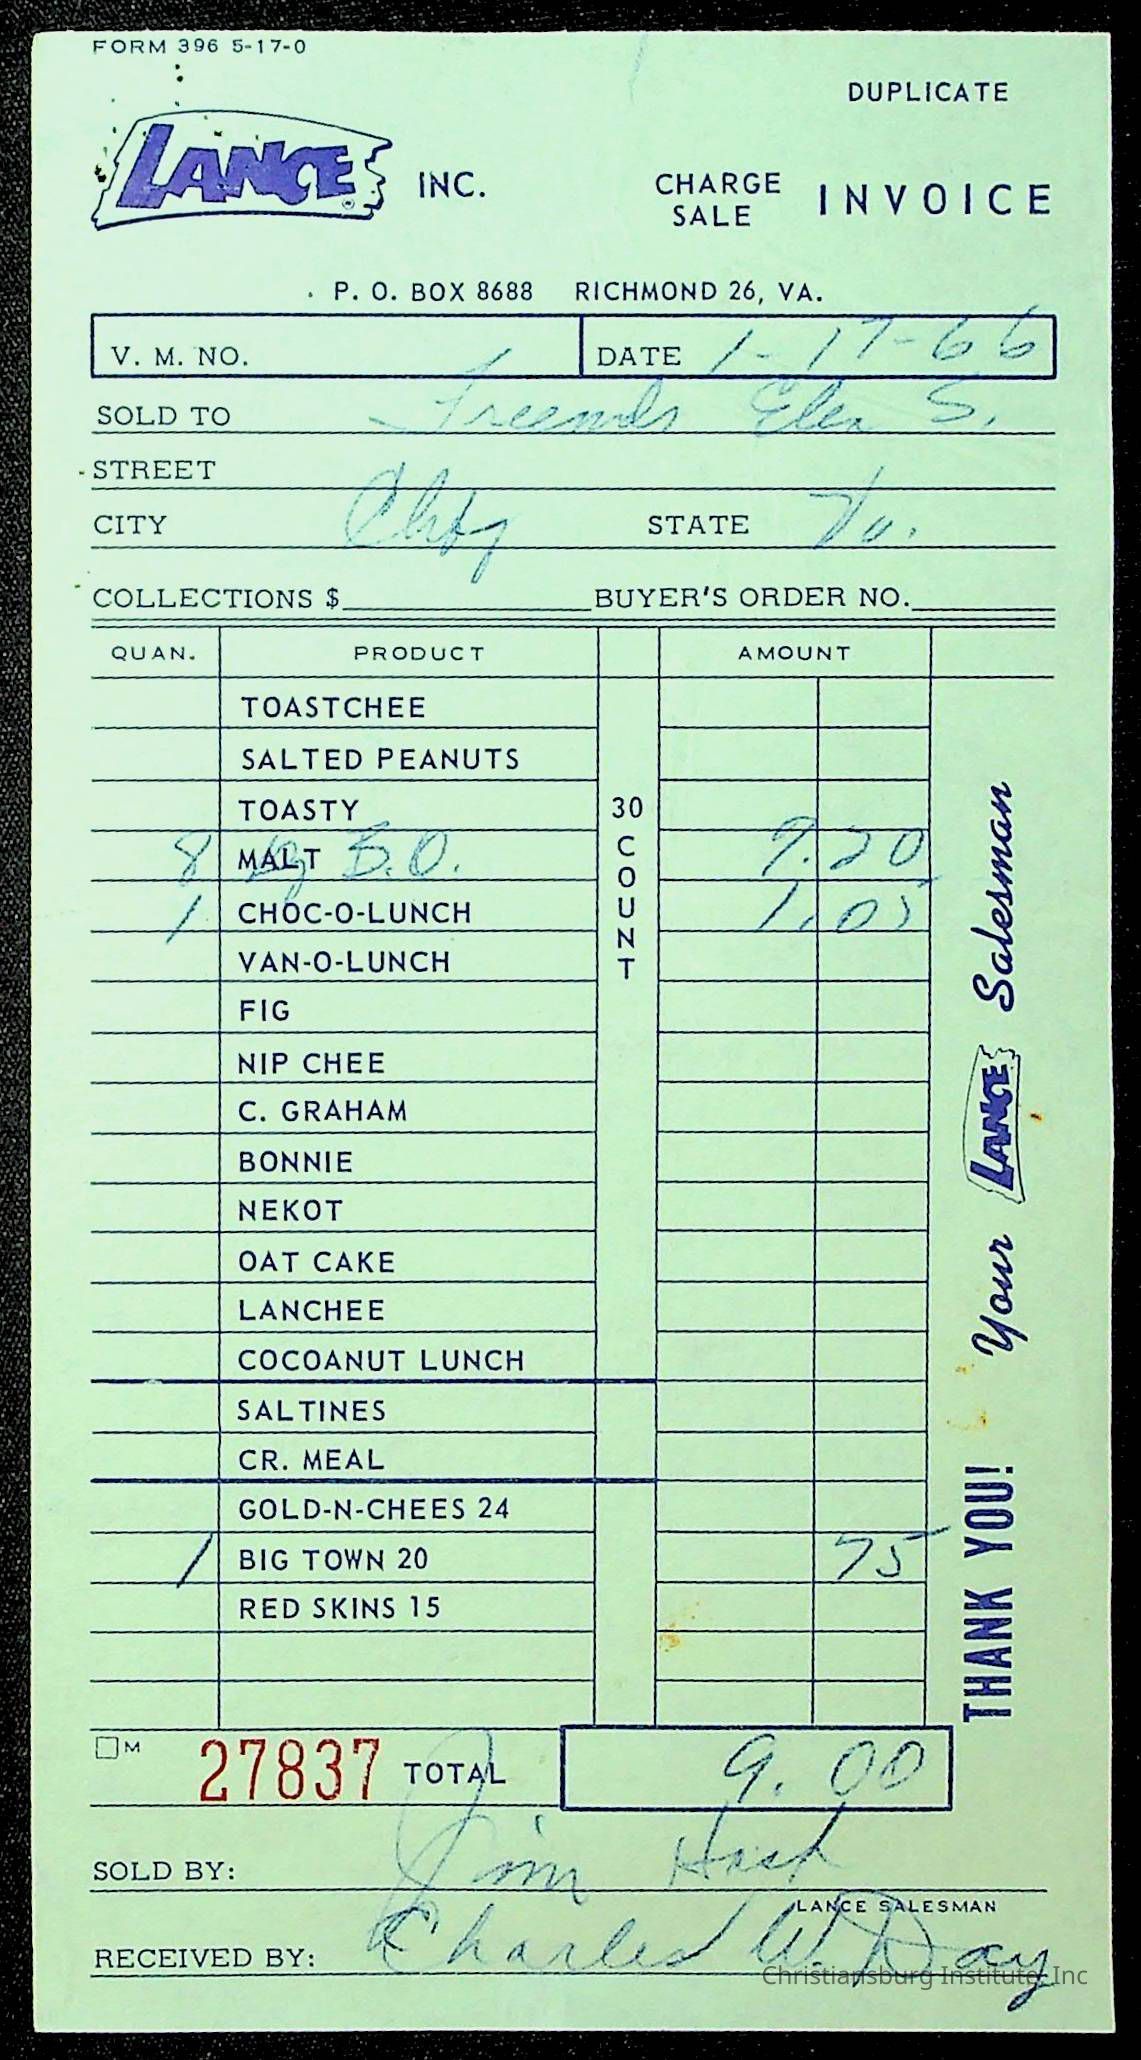 FORM 396 5-17-0
DUPLICATE
LANCE® INC. CHARGE SALE INVOICE
P. O. BOX 8688 RICHMOND 26, VA.
V. M. NO. DATE 1-17-66
SOLD TO Friends Elem S.
STREET
CITY Chbg STATE Va.
COLLECTIONS $ BUYER'S ORDER NO.
QUAN. PRODUCT AMOUNT
TOASTCHEE
SALTED PEANUTS
TOASTY 30
8 MALT B.O. COUNT 7.20
1 CHOC-O-LUNCH 1.05
VAN-O-LUNCH
FIG
NIP CHEE
C. GRAHAM
BONNIE
NEKOT
OAT CAKE
LANCHEE
COCOANUT LUNCH
SALTINES
CR. MEAL
GOLD-N-CHEES 24
1 BIG TOWN 20 75
RED SKINS 15
THANK YOU! Your LANCE Salesman
M 27837 TOTAL 9.00
SOLD BY: Jim
LANCE SALESMAN
RECEIVED BY: Charles W. Day
Christiansburg Institute, Inc